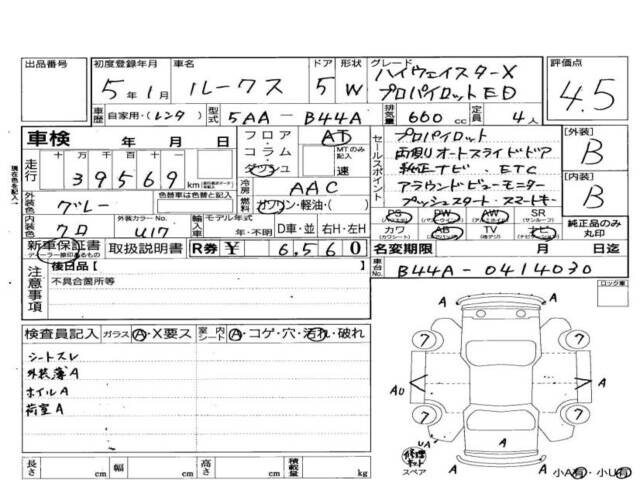 出品番号
初度登録年月
5年1月
車名
ルークス
ドア
5
形状
W
グレード
ハイウェイスターX
プロパイロットED
評価点
4.5
車歴
自家用・(レンタ)
型式
5AA-B44A
排気量
660cc
定員
4人
車検
年 月 日
フロア・コラム・ダッシュ
AT
MTのみ記入
速
セールスポイント
プロパイロット
両側オートスライドドア
純正ナビ ETC
アラウンドビューモニター
プッシュスタート スマートキー
[外装]
B
[内装]
B
現在色を記入
走行
十万 万 千 百 十
39569
km
外装色
グレー
色替車は色替と記入
冷房
AAC
ガソリン・軽油・( )
内装色
クロ
外装カラーNo.
U17
輸入車
モデル年式
年・不明
D車・並
右H・左H
PS
(パワステ)
PW
AW
SR
(サンルーフ)
カワ
(カワシート)
AB
(エアバッグ)
TV
(地デジ)
ナビ
純正品のみ丸印
新車保証書
ディーラー捺印あるもの
取扱説明書
R券
¥ 6,560
名変期限
月 日迄
車台No.
B44A-0414030
注意事項
後日品[ ]
不具合箇所等
ロック車
検査員記入
ガラス
A・X要ス
室内シート
A・コゲ・穴・汚れ・破れ
シートスレ
外装薄A
ホイルA
荷室A
7
7
AU
A
A
7
7
UA
A
A
A
修理キット
スペア
小A有・小U有
長さ cm
幅 cm
高さ cm
積載量 kg